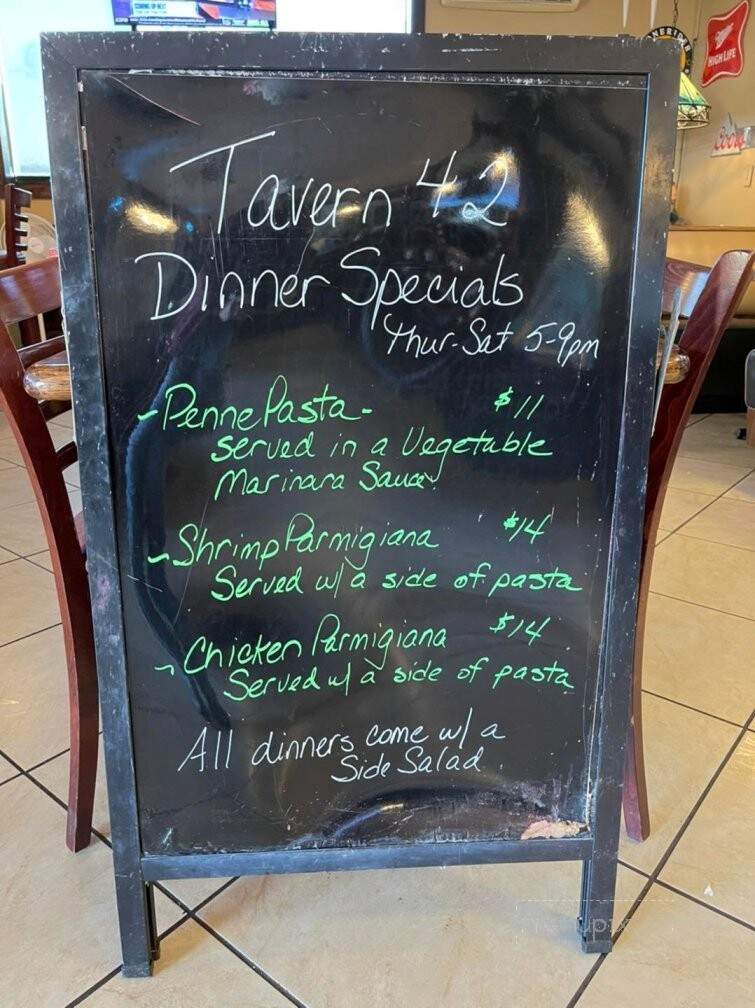 COMING UP NEXT
MINERIDER
Miller
HIGH LIFE
Coors
Tavern 42
Dinner Specials
Thur-Sat 5-9pm
- Penne Pasta - $11
served in a Vegetable
Marinara Sauce
~ Shrimp Parmigiana $14
Served w/ a side of pasta
~ Chicken Parmigiana $14
Served w/ a side of pasta
All dinners come w/ a
Side Salad